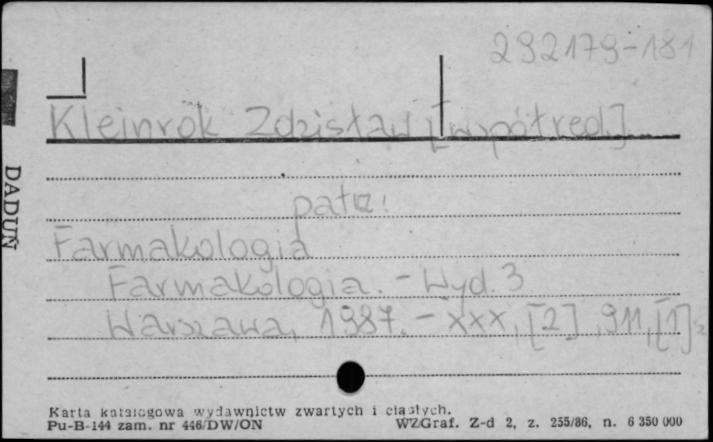 292179-181
Kleinrok Zdzisław [współred.]
patrz:
Farmakologia
Farmakologia. - Wyd. 3
Warszawa, 1987. - XXX, [2], 911, [1] s.
DADUŃ
Karta katalogowa wydawnictw zwartych i ciągłych.
Pu-B-144 zam. nr 446/DW/ON
WZGraf. Z-d 2, z. 255/86, n. 6 350 000